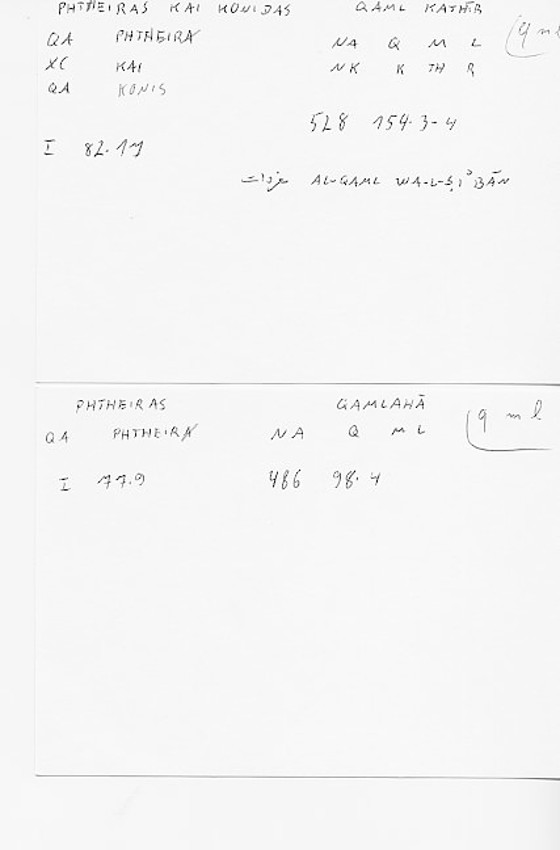 PHTHEIRAS KAI KONIDAS QAML KATHĪR
QA PHTHEIRA NA Q M L q m l
XC KAI NK K TH R
QA KONIS
528 154.3-4
I 82.17
AL-QAML WA-L-ṢI'BĀN
PHTHEIRAS QAMLAHĀ
QA PHTHEIRA NA Q M L q m l
I 77.9 486 98.4